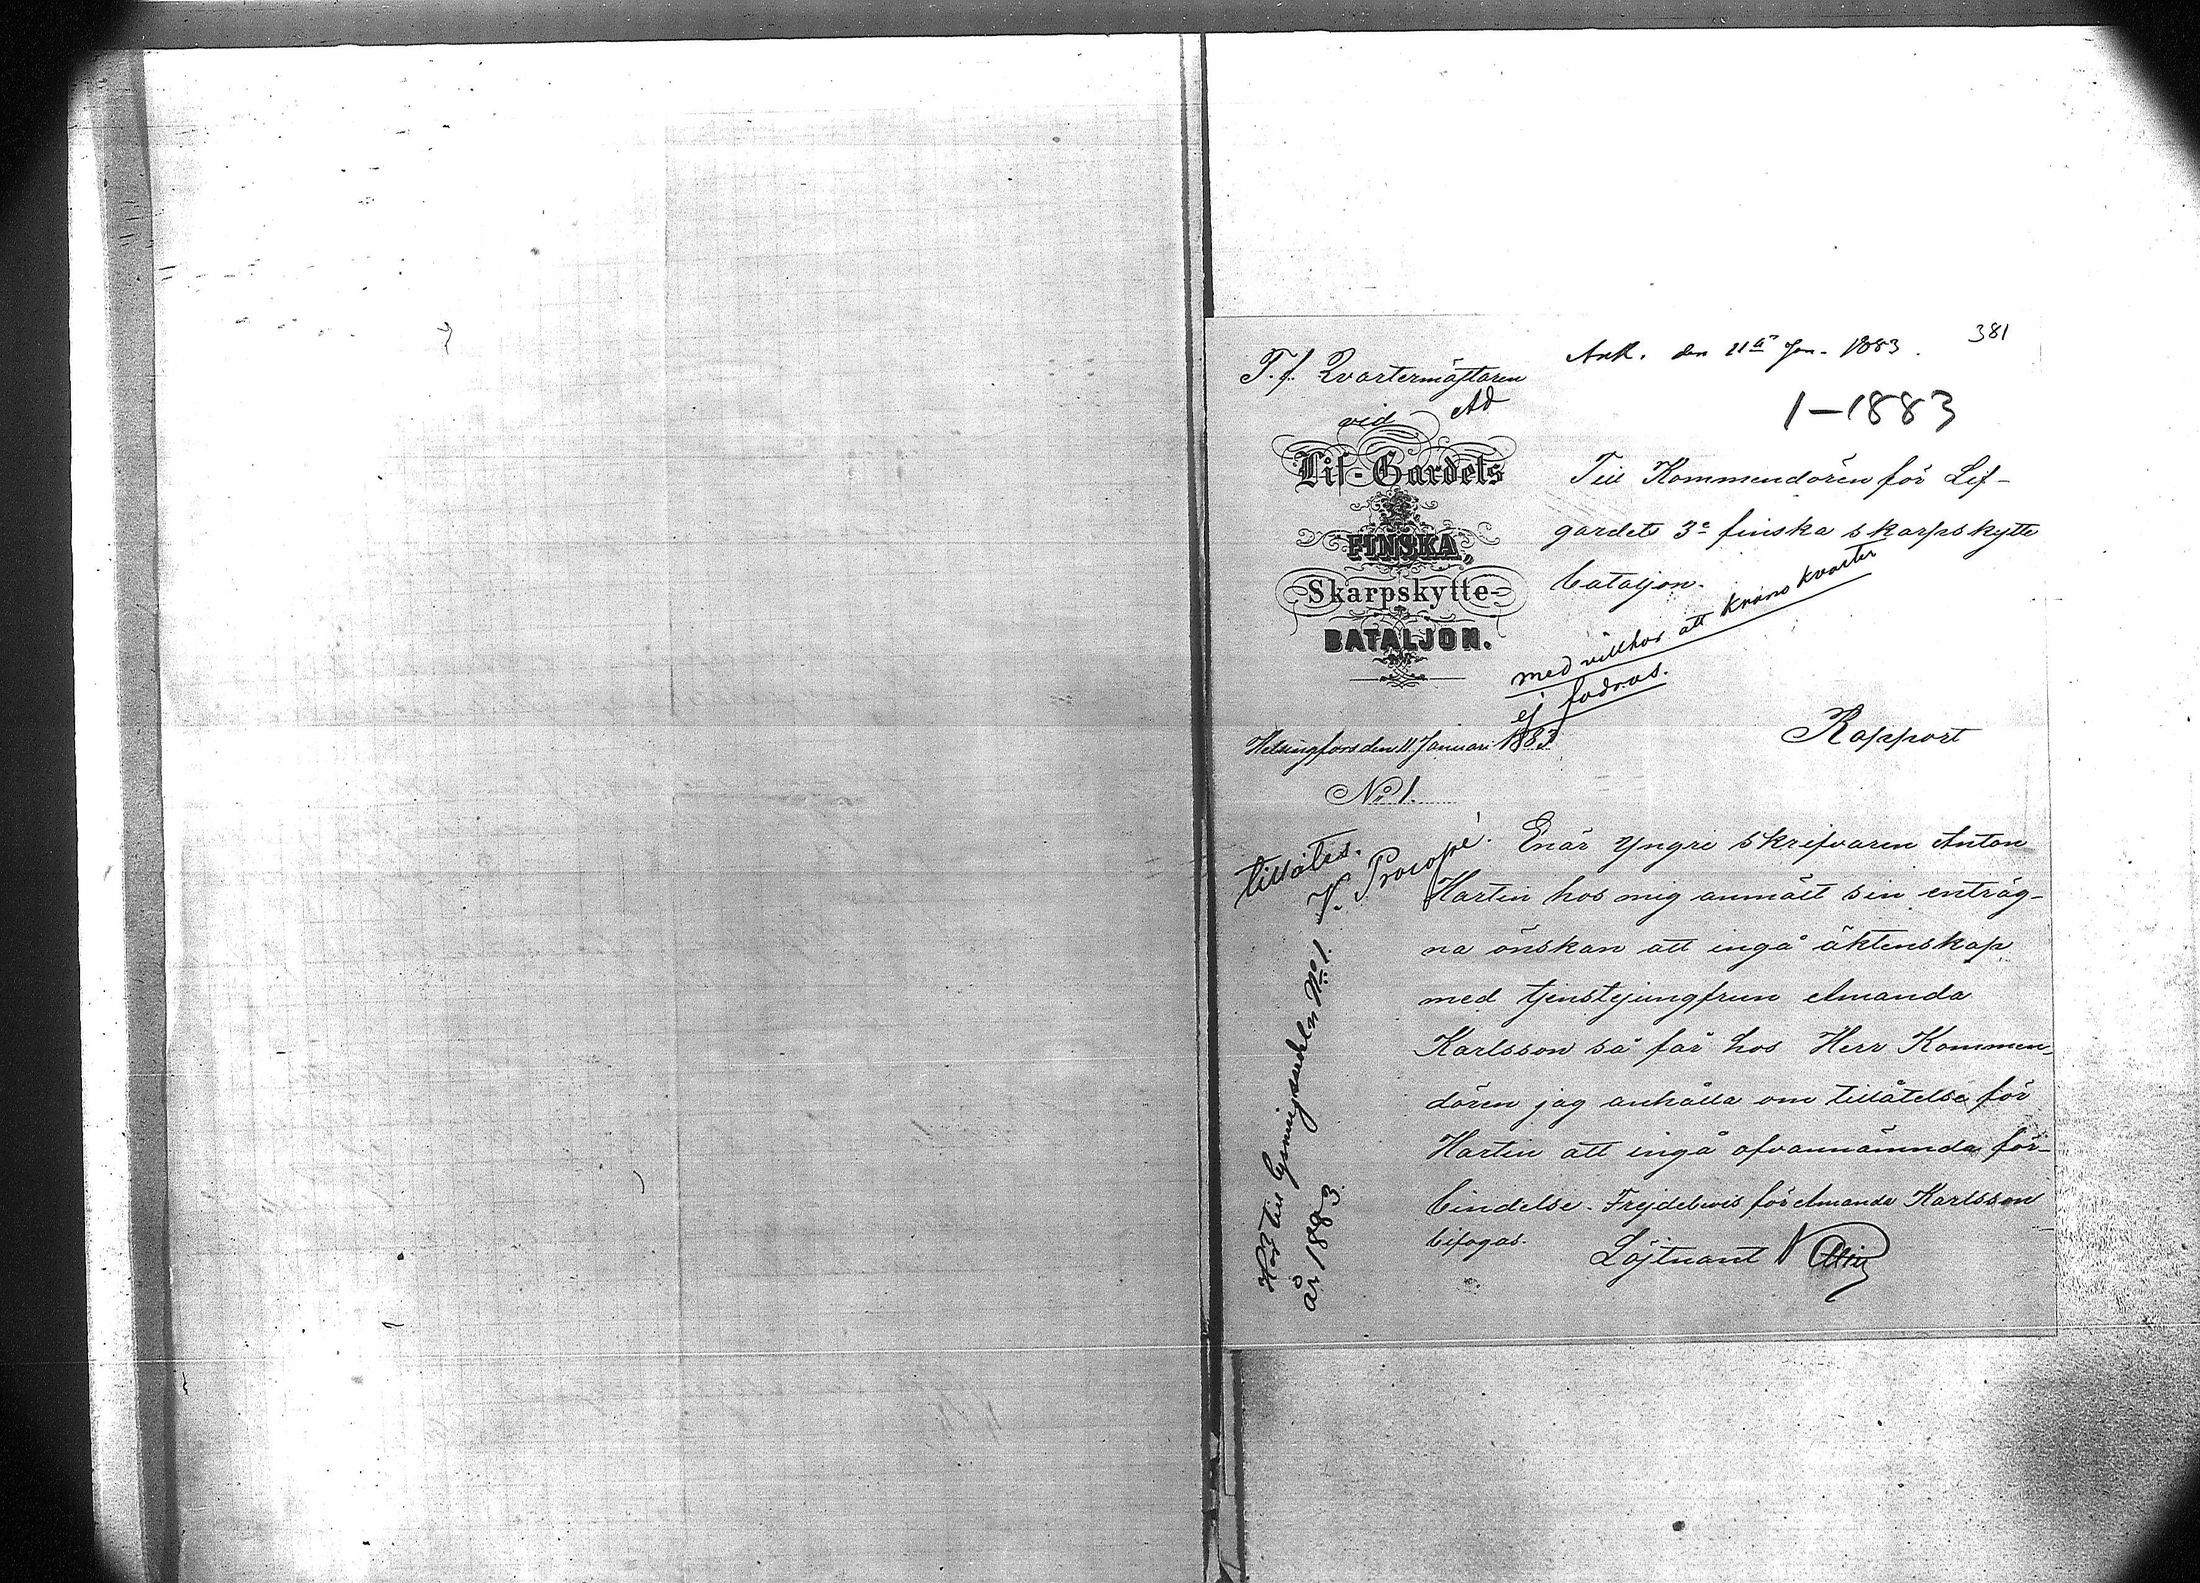 381
Ank. den 11te Jan. 1883.
1–1883
T. f. Qvartermästaren
vid
Lif-Gardets
FINSKA
Skarpskytte-
BATALJON.
Helsingfors den 11 Januari 1883
No 1.
Till Kommendören för Lif-
gardets 3e finska skarpskytte
bataljon.
med villkor att krono kvarter
ej fodras.
Rapport
tillåtes.
V. Procopé.
Enär Yngre skrifvaren Anton
Hartin hos mig anmält sin enträg-
na önskan att ingå äktenskap
med tjenstejungfrun Amanda
Karlsson så får hos Herr Kommen-
dören jag anhålla om tillåtelse för
Hartin att ingå ofvannämnda för-
bindelse. Frejdebevis för Amanda Karlsson
bifogas.
Löjtnant
Hör till lysningssedeln No 1.
år 1883.